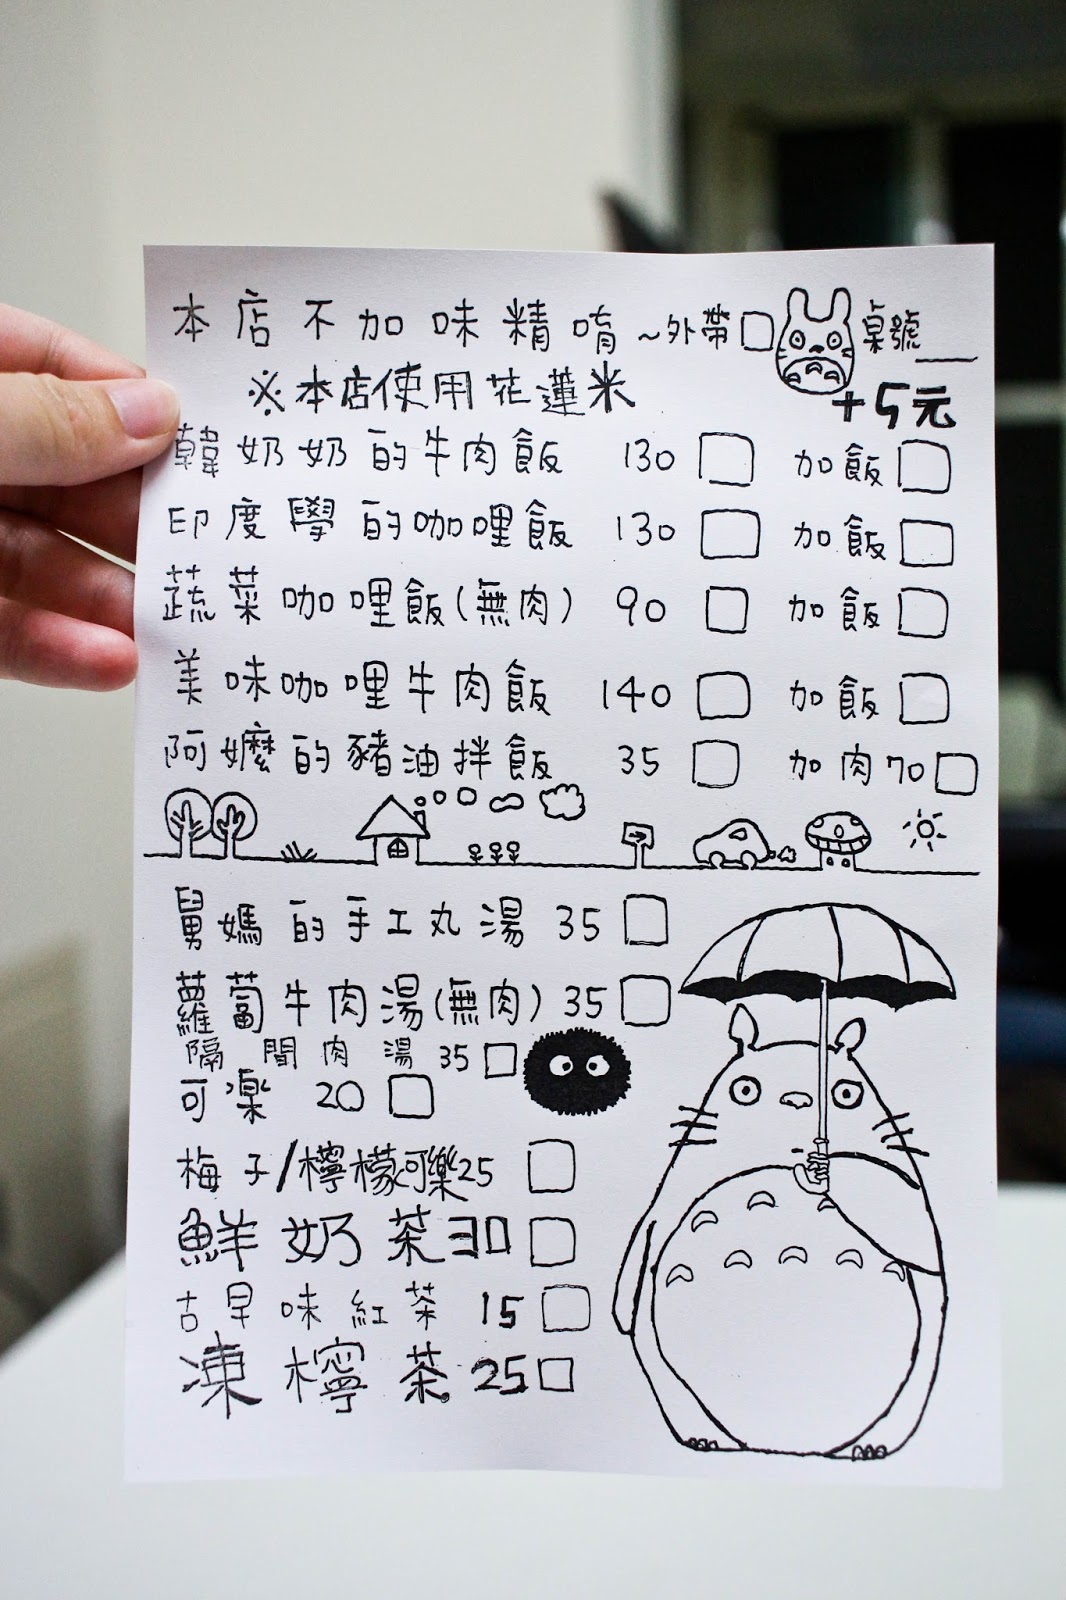 本店不加味精唷~外帶□ 桌號___
※本店使用花蓮米 +5元
韓奶奶的牛肉飯 130 □ 加飯□
印度學的咖哩飯 130 □ 加飯□
蔬菜咖哩飯(無肉) 90 □ 加飯□
美味咖哩牛肉飯 140 □ 加飯□
阿嬤的豬油拌飯 35 □ 加肉70□
舅媽的手工丸湯 35 □
蘿蔔牛肉湯(無肉) 35 □
隔間肉湯 35 □
可樂 20 □
梅子/檸檬可樂25 □
鮮奶茶30 □
古早味紅茶 15 □
凍檸茶 25□